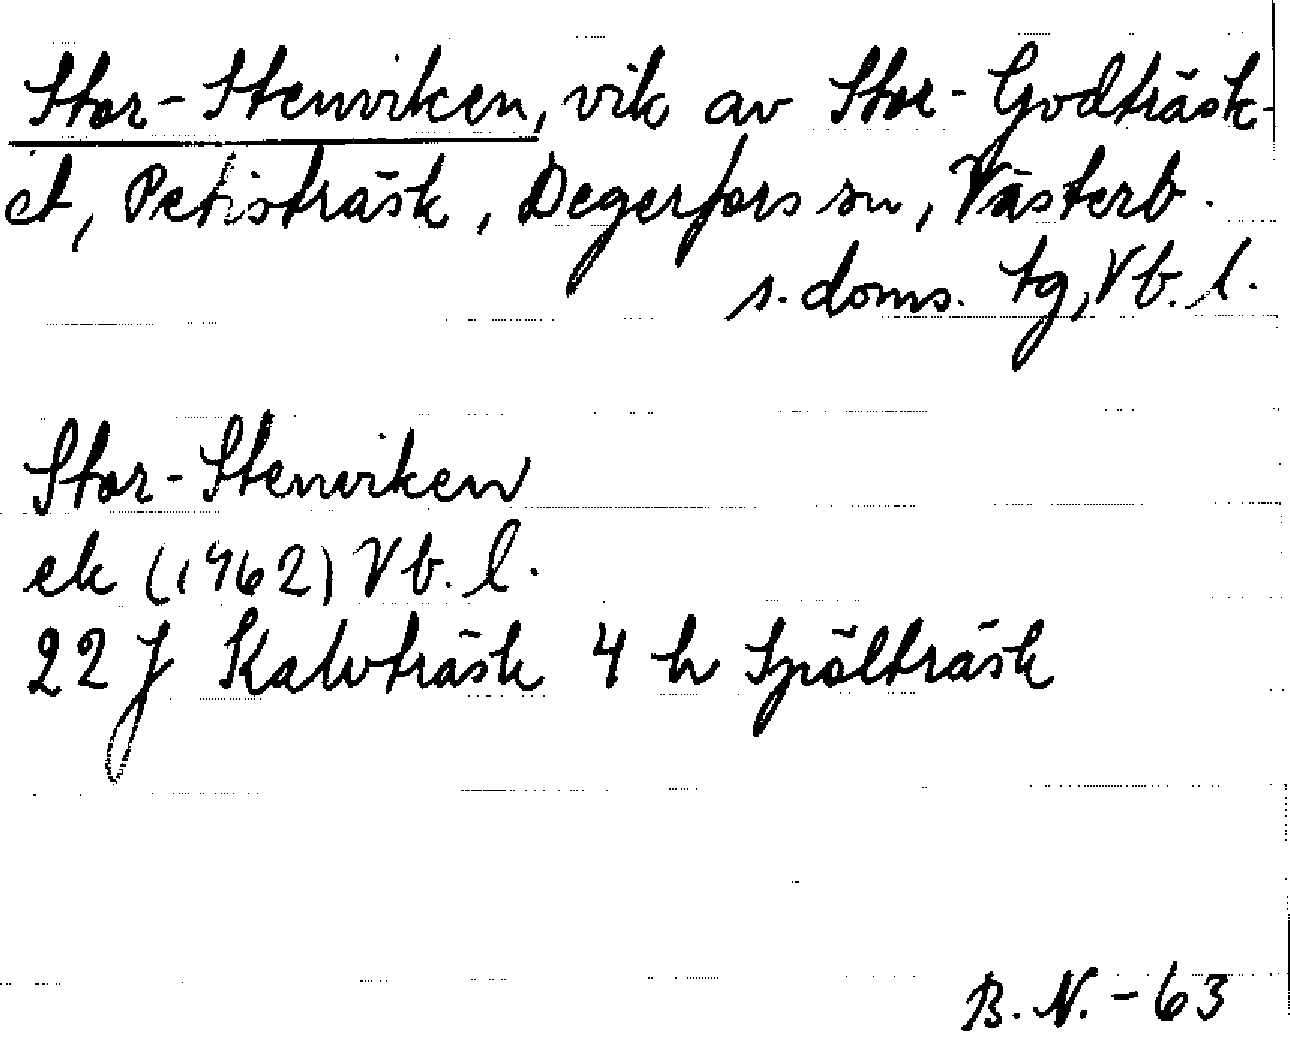 Stor-Stenviken, vik av Stor-Godträsk-
et, Petisträsk, Degerfors sn, Västerb.
s. doms. tg, Vb. l.
Stor-Stenviken
ek (1962) Vb. l.
22 J Kalvträsk 4 h Spälträsk
B. N. - 63